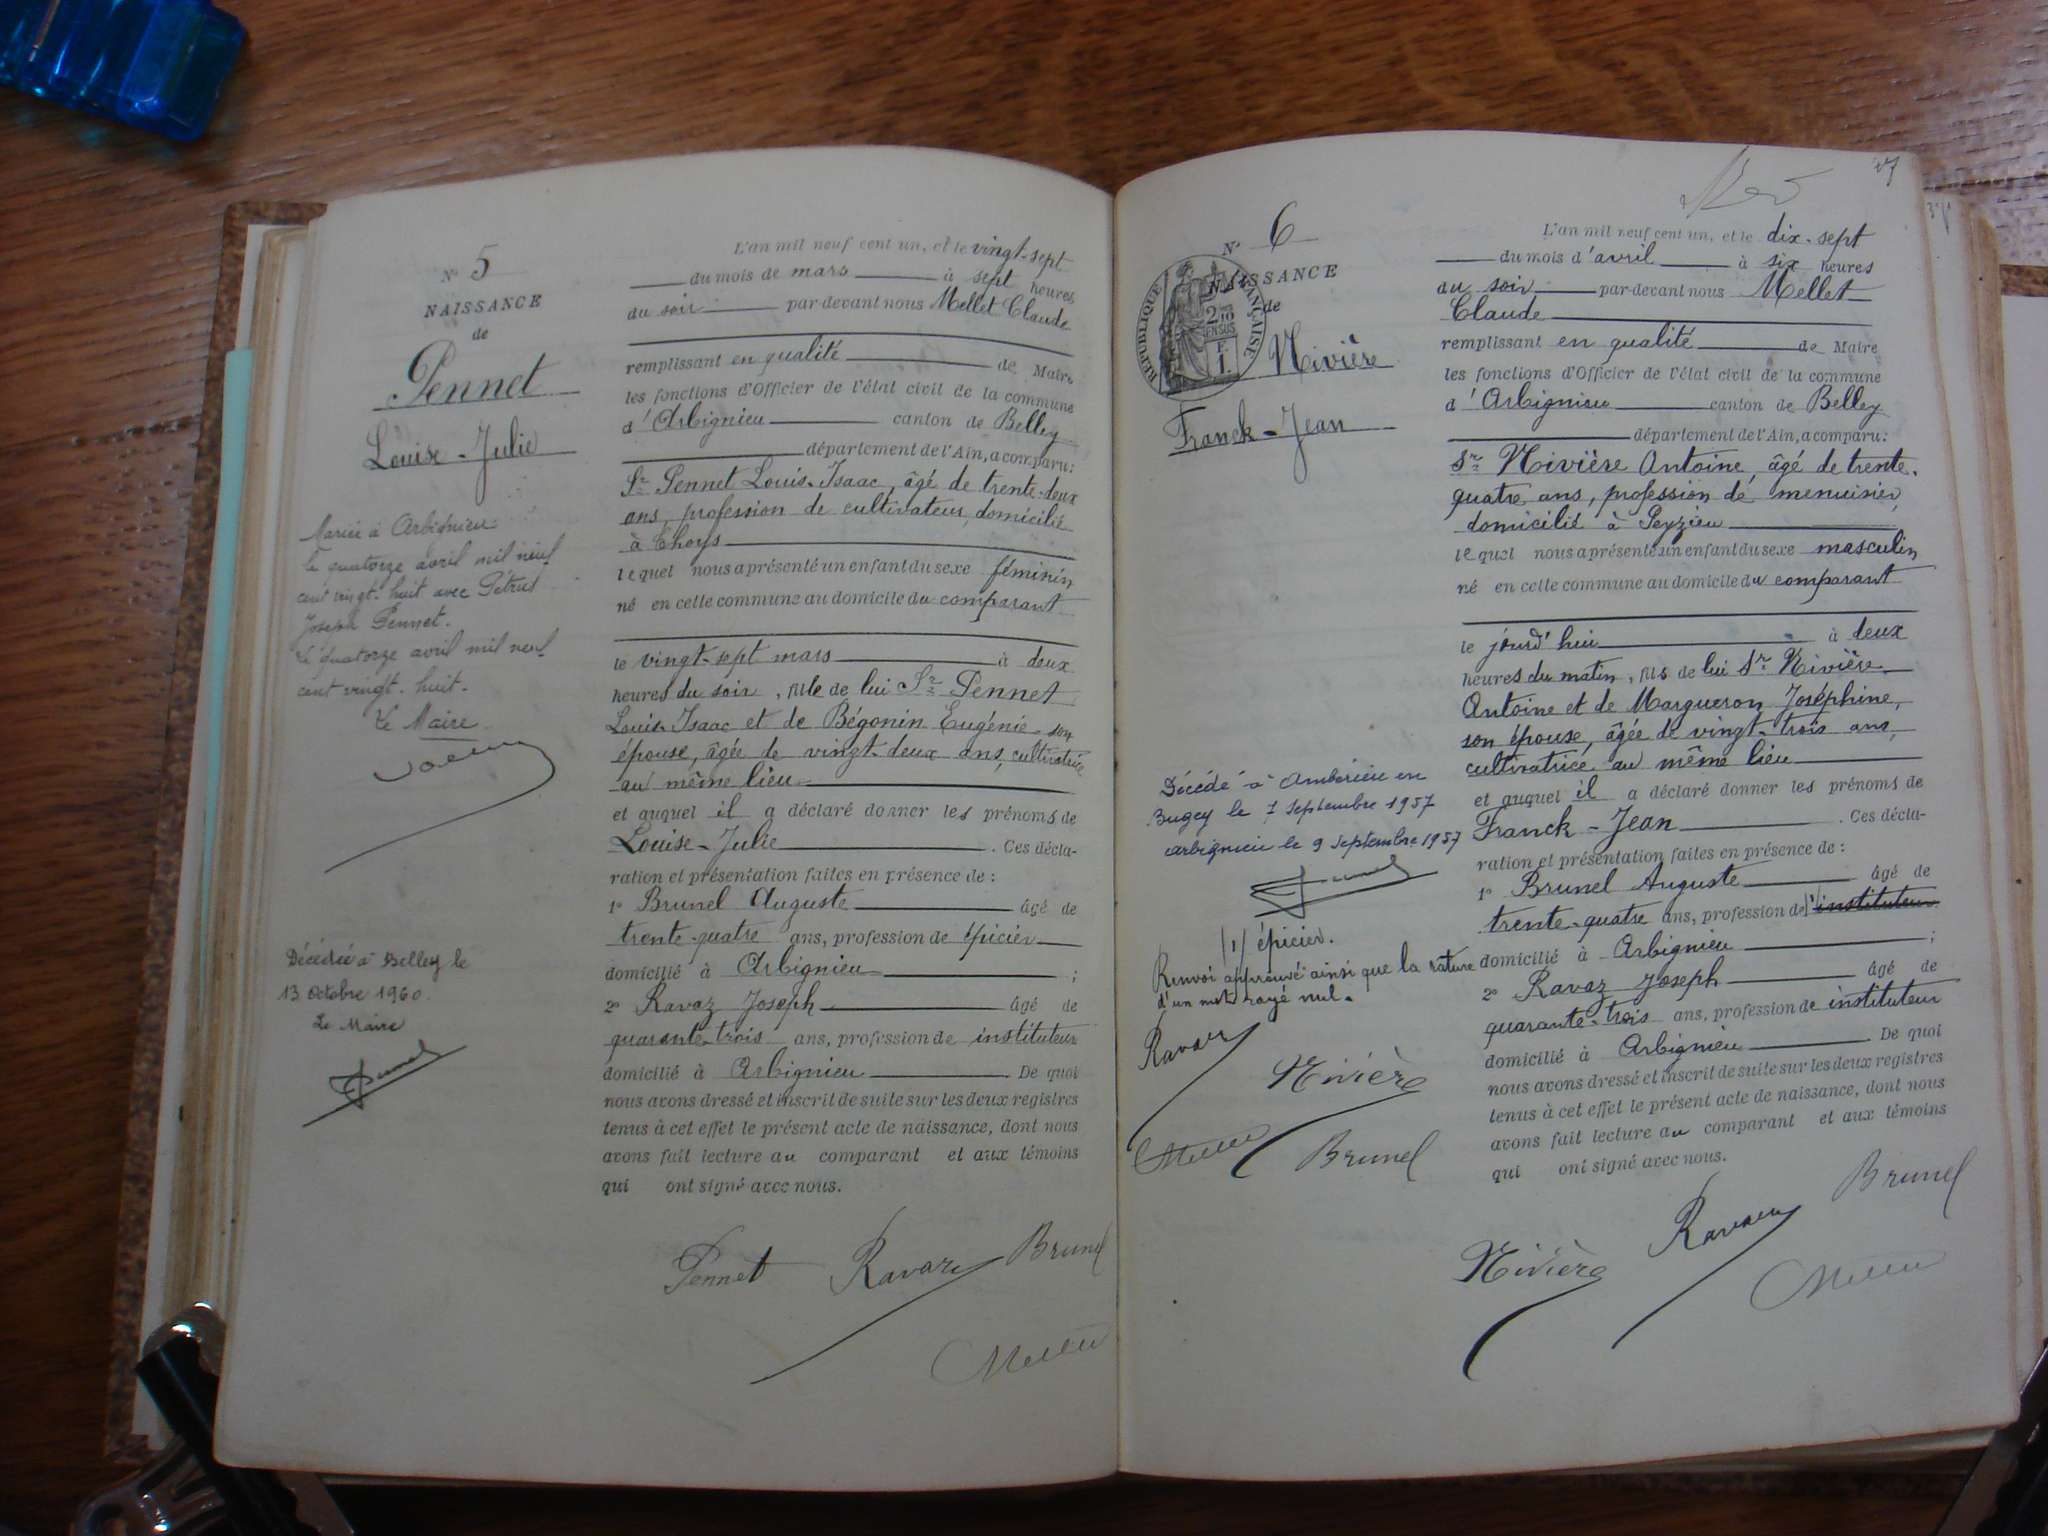 N° 5
NAISSANCE
de
Pennet
Louise-Julie
Mariée à Arbignieu
le quatorze avril mil neuf
cent vingt-huit avec Pétrus
Joseph Pennet.
Le quatorze avril mil neuf
cent vingt-huit.
Le Maire
Décédée à Belley le
13 octobre 1960.
Le Maire
L'an mil neuf cent un, et le vingt-sept
du mois de mars à sept heures
du soir par-devant nous Mellet Claude
remplissant en qualité de Maire
les fonctions d'Officier de l'état civil de la commune
d'Arbignieu canton de Belley
département de l'Ain, a comparu:
Sr Pennet Louis-Isaac, âgé de trente-deux
ans, profession de cultivateur, domicilié
à Thoys
lequel nous a présenté un enfant du sexe féminin
né en cette commune au domicile du comparant
le vingt-sept mars à deux
heures du soir, fille de lui Sr Pennet
Louis-Isaac et de Bégonin Eugénie son
épouse, âgée de vingt-deux ans, cultivatrice
au même lieu
et auquel il a déclaré donner les prénoms de
Louise-Julie. Ces décla-
ration et présentation faites en présence de :
1° Brunel Auguste âgé de
trente-quatre ans, profession de épicier
domicilié à Arbignieu ;
2° Ravaz Joseph âgé de
quarante-trois ans, profession de instituteur
domicilié à Arbignieu. De quoi
nous avons dressé et inscrit de suite sur les deux registres
tenus à cet effet le présent acte de naissance, dont nous
avons fait lecture au comparant et aux témoins
qui ont signé avec nous.
Pennet Ravaz Brunel
Mellet
N° 6
NAISSANCE
de
RÉPUBLIQUE FRANÇAISE
Nivière
Franck-Jean
Décédé à Ambérieu en
Bugey le 7 septembre 1957
Arbignieu le 9 septembre 1957
(1) épicier.
Renvoi approuvé ainsi que la rature
d'un mot rayé nul.
Ravaz
Nivière
Mellet Brunel
L'an mil neuf cent un, et le dix-sept
du mois d'avril à six heures
du soir par-devant nous Mellet
Claude
remplissant en qualité de Maire
les fonctions d'Officier de l'état civil de la commune
d'Arbignieu canton de Belley
département de l'Ain, a comparu:
Sr Nivière Antoine, âgé de trente-
quatre ans, profession de menuisier,
domicilié à Peyzieu
lequel nous a présenté un enfant du sexe masculin
né en cette commune au domicile du comparant
le jourd'hui à deux
heures du matin, fils de lui Sr Nivière
Antoine et de Margueron Joséphine,
son épouse, âgée de vingt-trois ans,
cultivatrice au même lieu
et auquel il a déclaré donner les prénoms de
Franck-Jean. Ces décla-
ration et présentation faites en présence de :
1° Brunel Auguste âgé de
trente-quatre ans, profession de (1) instituteur
domicilié à Arbignieu ;
2° Ravaz Joseph âgé de
quarante-trois ans, profession de instituteur
domicilié à Arbignieu. De quoi
nous avons dressé et inscrit de suite sur les deux registres
tenus à cet effet le présent acte de naissance, dont nous
avons fait lecture au comparant et aux témoins
qui ont signé avec nous.
Brunel
Nivière Ravaz
Mellet